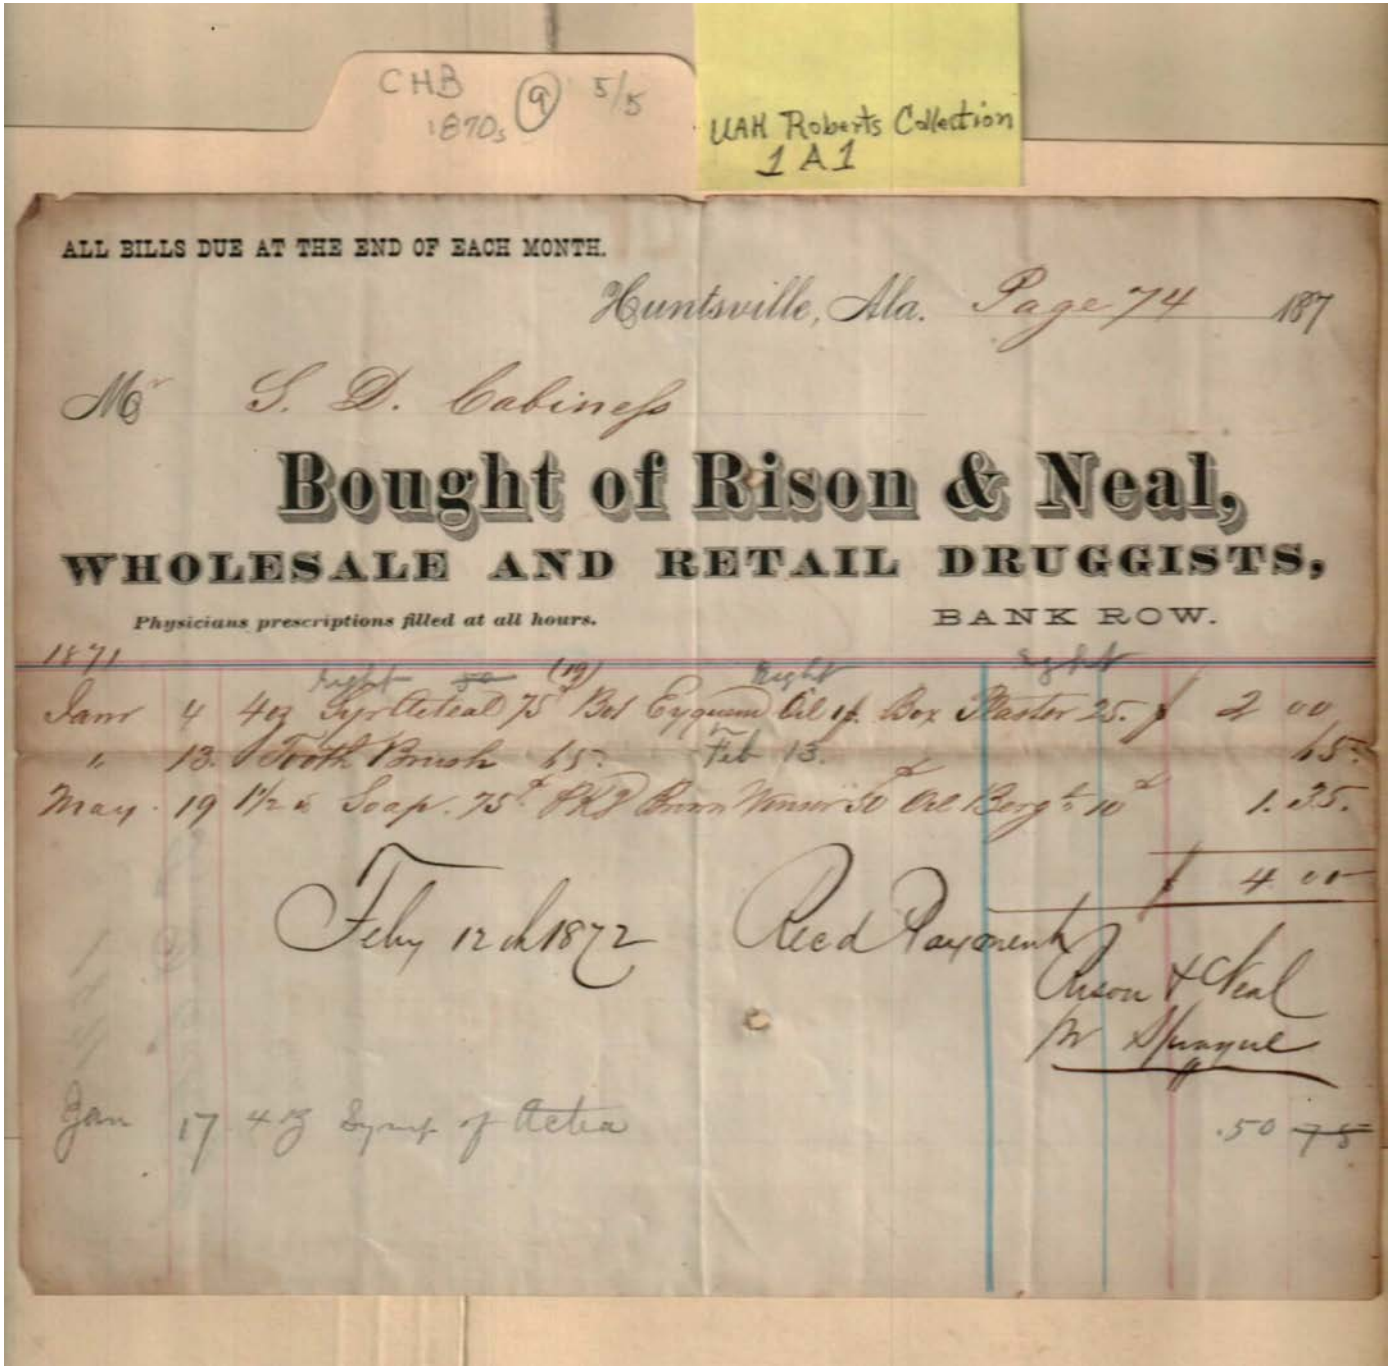 CHB 9 5/5
1870s
UAH Roberts Collection
1 A 1
ALL BILLS DUE AT THE END OF EACH MONTH.
Huntsville, Ala. Page 74 187
Mr S. D. Cabiness
Bought of Rison & Neal,
WHOLESALE AND RETAIL DRUGGISTS,
Physicians prescriptions filled at all hours. BANK ROW.
1871
right 50 (19) Right right
Janr 4 4oz Syr 75 Bot Oil Box Plaster 25. $ 2 00
" 13. Tooth Brush 65. Feb 13. 65
May 19 1½ Soap. 75 Brown Winsor 50 Oil Berg 10 1.35.
$ 4 00
Feby 12th 1872 Recd Payment
Rison & Neal
Sprague
Jan 17 4 oz Syrup of .50 75